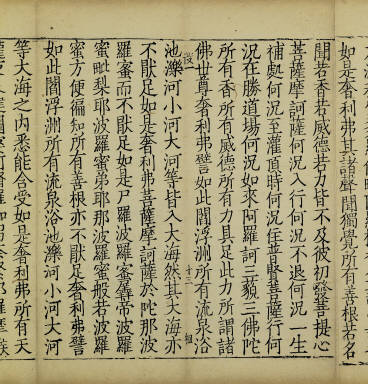 如是奢利弗其諸聲聞獨覺所有善根若名
聞若香若威德若力皆不及彼初發菩提心
菩薩摩訶薩何況入行何況不退何況一生
補處何況至灌頂時何況住普賢菩薩行何
況在勝道場何況如來阿羅訶三藐三佛陀
所有香所有威德所有力具足此力所謂諸
佛世尊奢利弗譬如此閻浮洲所有流泉浴
十三
池濼河小河大河等皆入大海然其大海亦
不猒足如是奢利弗菩薩摩訶薩於陀那波
羅蜜而不猒足如是尸羅波羅蜜羼帝波羅
蜜毗梨耶波羅蜜第耶那波羅蜜般若波羅
蜜方便徧知所有善根亦不猒足奢利弗譬
如此閻浮洲所有流泉浴池濼河小河大河
等大海之內悉能含受如是奢利弗所有天